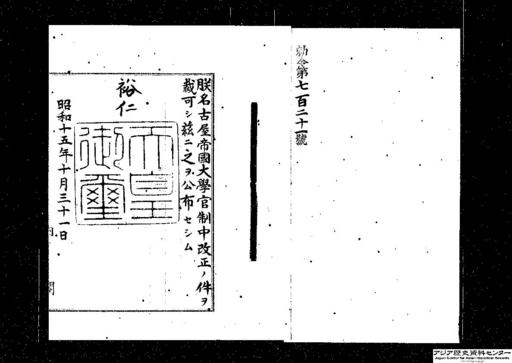 勅令第七百二十一號
朕名古屋帝國大學官制中改正ノ件ヲ
裁可シ茲ニ之ヲ公布セシム
裕仁
天皇
御璽
昭和十五年十月三十一日
内閣
アジア歴史資料センター
Japan Center for Asian Historical Records